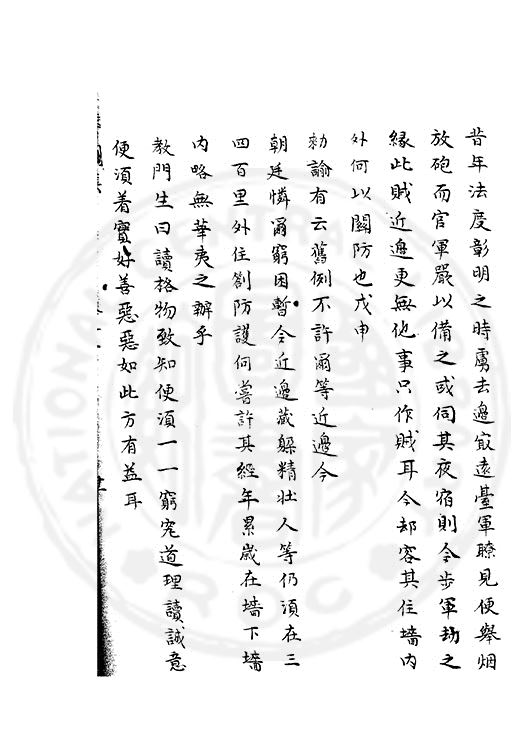 昔年法度彰明之時虜去邊㝡遠臺軍瞭見便舉烟
放砲而官軍嚴以備之或伺其夜宿則令步軍刼之
緣此賊近邊更無他事只作賊耳今却容其住墻内
外何以關防也戊申
勑諭有云舊例不許爾等近邊今
朝廷憐爾窮困暫令近邊藏躱精壯人等仍須在三
四百里外住劄防護何嘗許其經年累歲在墻下墻
内略無華夷之辦乎
教門生曰讀格物致知便須一一窮究道理讀誠意
便須着實好善惡惡如此方有益耳